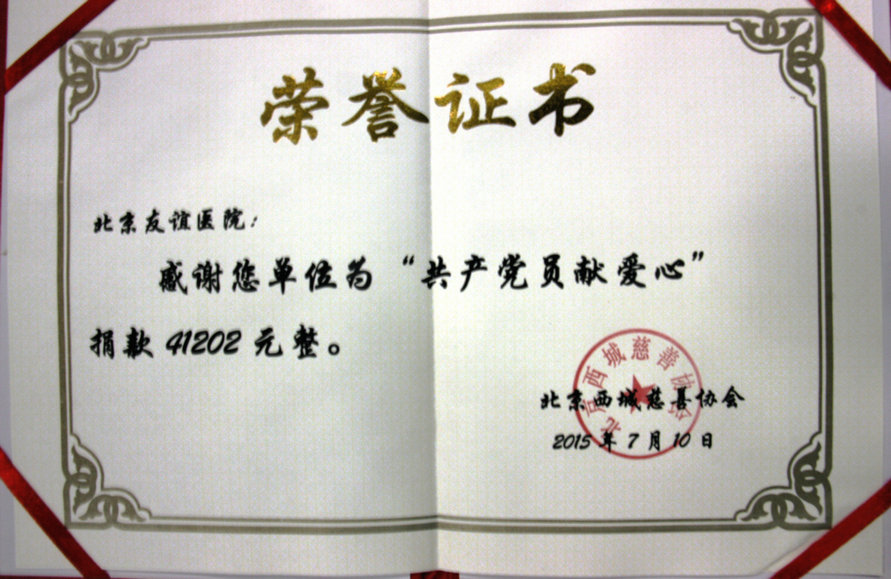 荣誉证书
北京友谊医院：
感谢您单位为“共产党员献爱心”
捐款 41202 元整。
北京西城慈善协会
北京西城慈善协会
2015 年 7 月 10 日